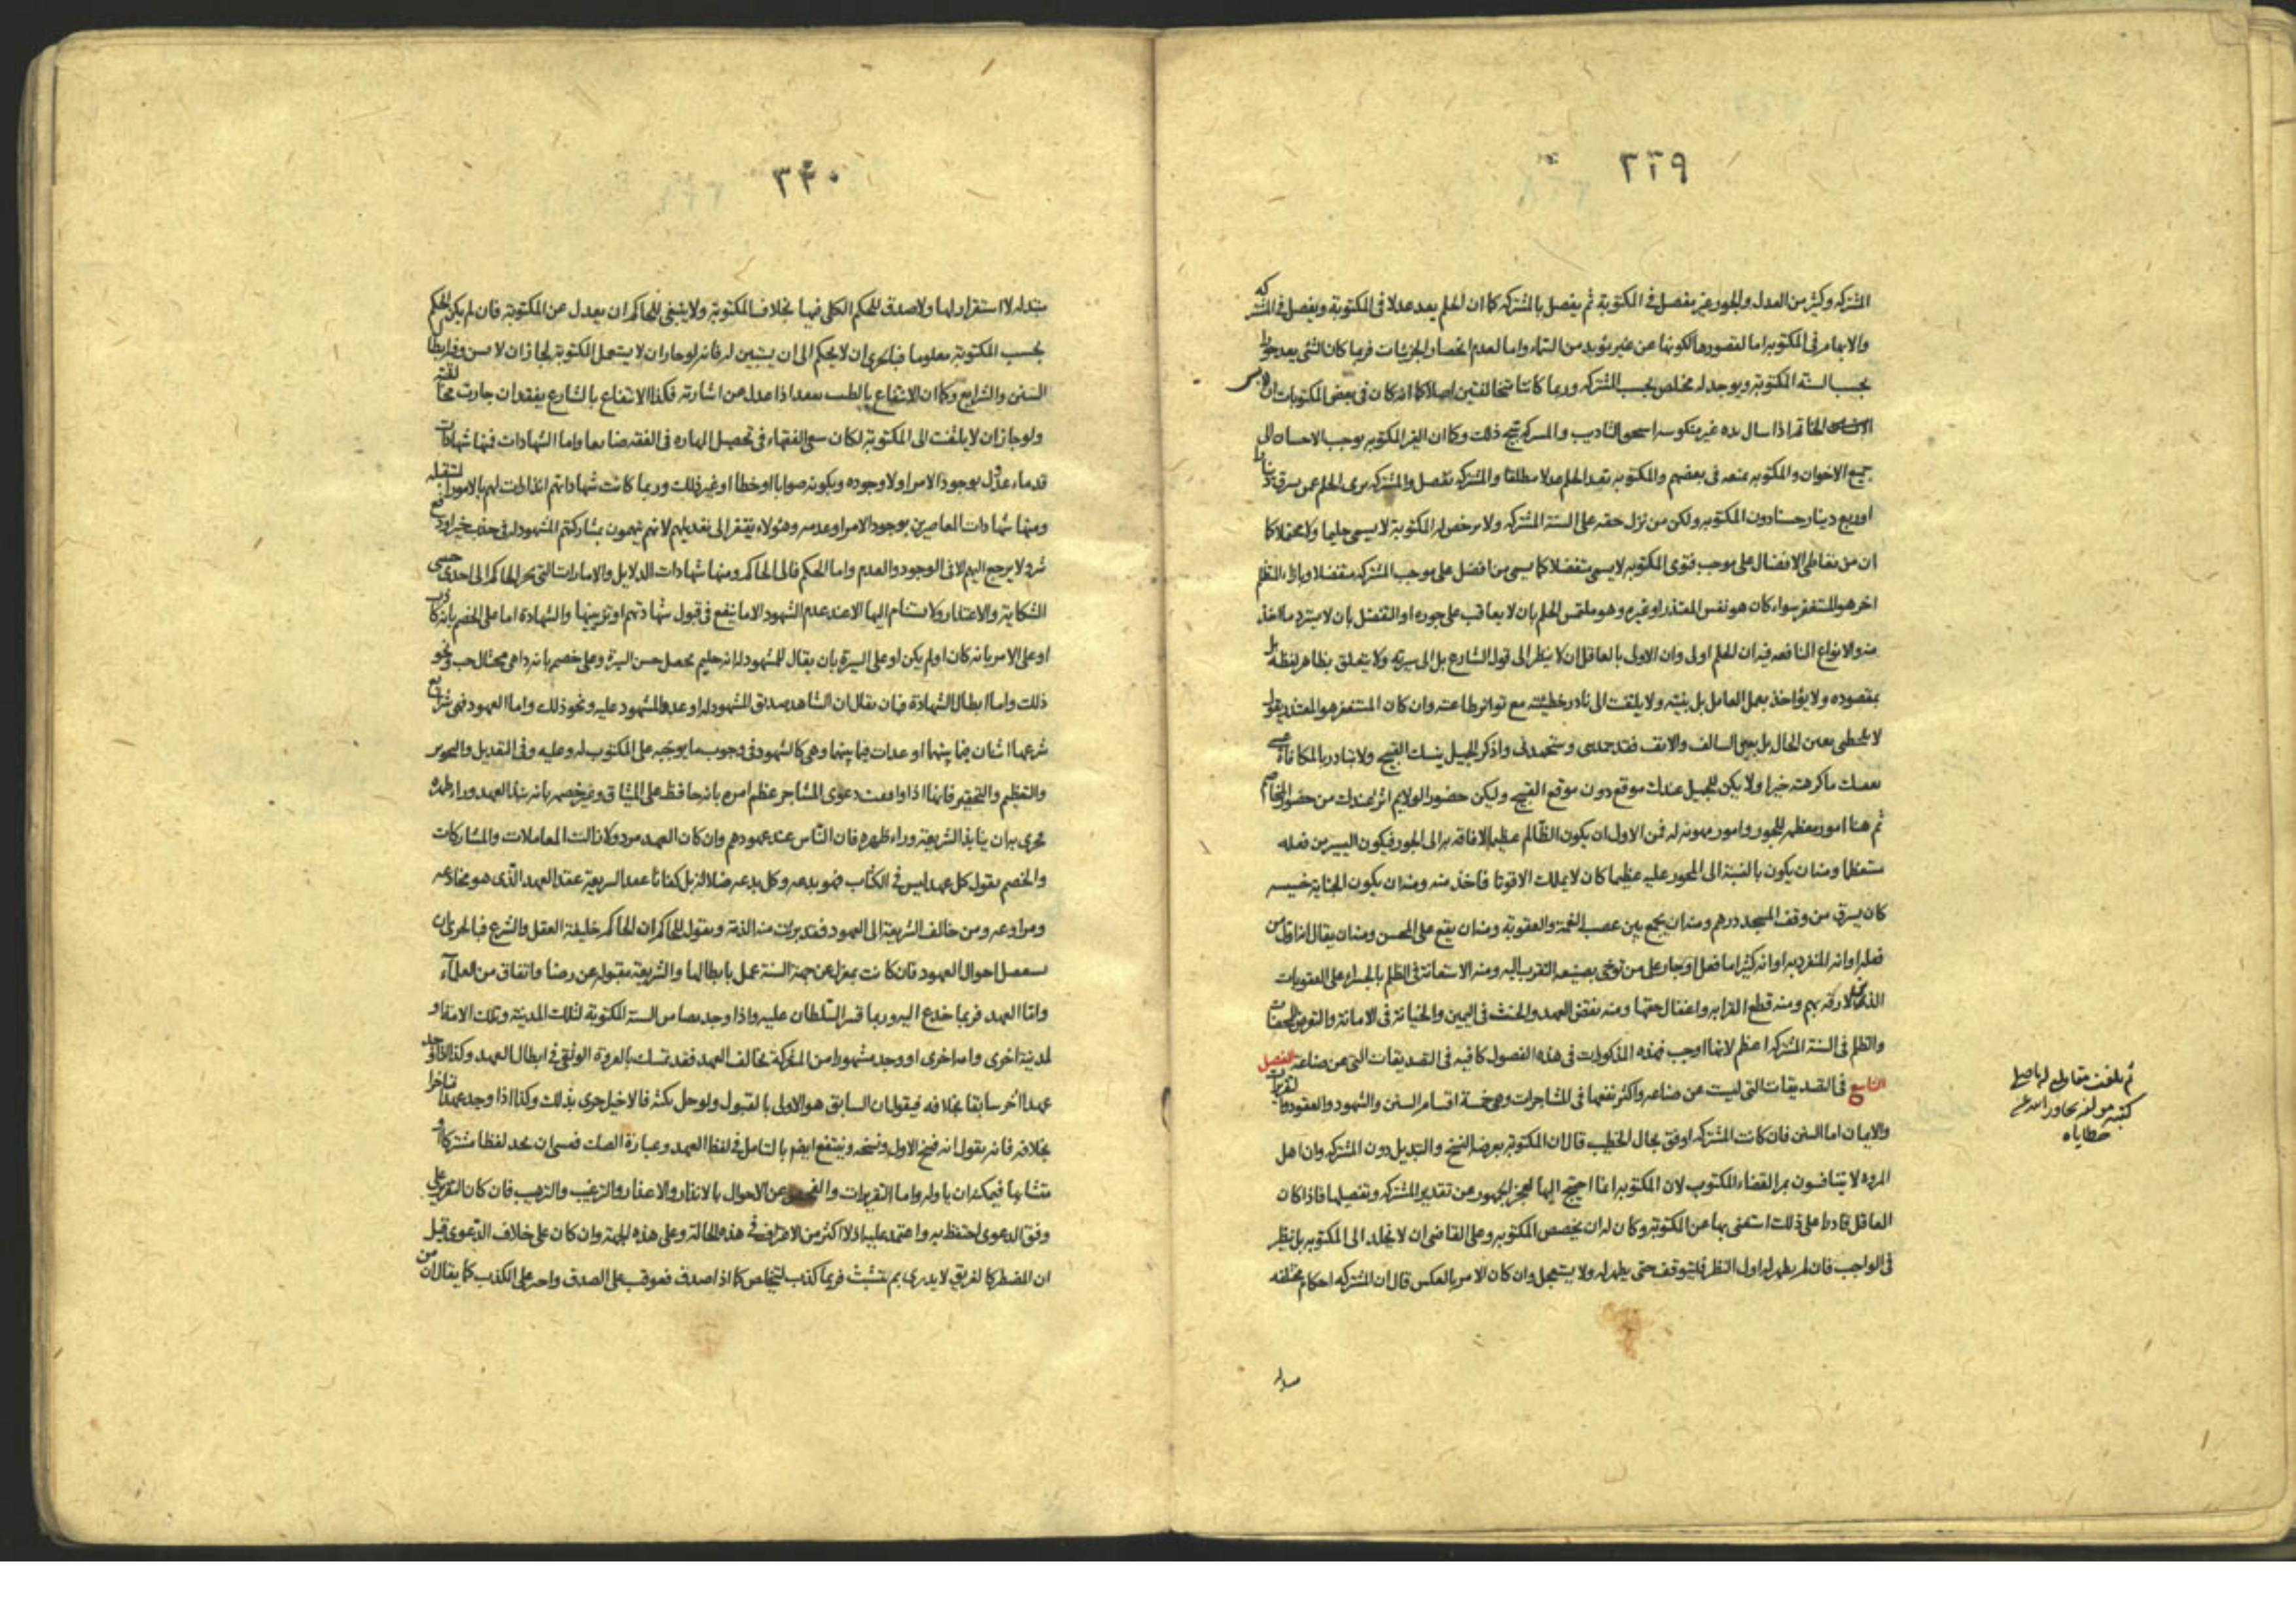 ٣٣٩
المشتركه وكثير من العدل والجور غير مفصل في المكتوبة ثم يفصل بالمشتركه كما ان الحلم يعد عدلا في المكتوبة ويفصل في المشتركه
والابهام في المكتوبه اما لقصورها لكونها عن غير مؤيد من السماء واما لعدم انحصار الجزئيات فربما كان الشئ يعد جورا
بحسب السنة المكتوبة ويوجد له مخلص بحسب المشتركه وربما كانتا متخالفتين اصلا كما انه كان في بعض المكتوبات ان
اذا سال يده غير منكوسه استحق التاديب والمشتركه تقبح ذلك وكما ان الغير المكتوبه يوجب الاحسان الى
جميع الاخوان والمكتوبه بمنعه في بعضهم والمكتوبه تعد الحلم عدلا مطلقا والمشتركه تفصل والمشتركه يرى الحلم عمن سرق
اوربع دينار حسنا دون المكتوبه ولكن من نزل حقه على السنة المشتركه ولا مرخص له المكتوبة لا يسمى حليما ولا محتملا كما
ان من تعاطى الافضال على موجب فتوى المكتوبه لا يسمى متفضلا كما يسمى من افضل على موجب المشتركه متفضلا وبازاء المتظلم
اخر هو المستغفر سواء كان هو نفس المعتذر او غيره وهو ملتمس الحلم بان لا يعاقب على جوره او التفضل بان لا يسترد ما اخذ
منه والانواع النافعه فيه ان الحلم اولى وان الاولى بالعاقل ان لا ينظر الى قول الشارع بل الى سيرته ولا يتعلق بظاهر لفظه بل
بمقصوده ولا يؤاخذ بعمل العامل بل بنيته ولا يلتفت الى نادر خطيئته مع تواتر طاعته وان كان المستغفر هو المعتذر يقول
لا تلحظني بعين الحال بل بعيني السالف والانف فقد وستحمدني واذكر الجميل ينسك القبيح ولا تبادر بالمكافاة
ما كرهته خيرا ولا يكن للجميل عندك موقع دون موقع القبيح وليكن حضور الولايم اثر عندك من حضور الخصام
ثم هنا امور يعظم بها الجور وامور مهونه له فمن الاول ان يكون الظالم عظيما لا فاقه به الى الجور فيكون اليسير من فعله
مستعظما ومنه ان يكون بالنسبة الى المجور عليه عظيما كان لا يملك الا قوتا فاخذ منه ومنه ان يكون الجناية خسيسه
كان يسرق من وقف المسجد درهم ومنه ان يجمع بين غصب النعمة والعقوبة ومنه ان يقع على المحسن ومنه ان يقال انه اول من
فعله او انه المنفرد به او انه كثيرا ما فعل او جار على من توخى بصنيعه التقرب اليه ومنه الاستعانة في الظلم بالجسراء على العقوبات
الذين لا رقة بهم ومنه قطع القرابه واغفال حقها ومنه نقض العهد والحنث في اليمين والخيانة في الامانة والتعرض للعفة
والظلم في السنة المشتركه اعظم لانها اوجب فهذه المذكورات في هذه الفصول كافيه في التصديقات التي عن صناعه الفصل
التاسع في التصديقات التي ليست عن صناعه واكثر نفعها في المشاجرات وهي خمسة اقسام السنن والشهود والعقود والتقريرات
والايمان اما السنن فان كانت المشتركه اوفق بحال الخطيب قال ان المكتوبه بعرض النسخ والتبديل دون المشتركه وان اهل
المروه لا يتنافسون بمر القضاء المكتوب لان المكتوبه انما احتيج اليها لعجز الجمهور من تقدير المشتركه وتفصيلها فاذا كان
العاقل قادرا على ذلك استغنى بها عن المكتوبة وكان له ان يخصص المكتوبه وعلى القاضى ان لا يخلد الى المكتوبه بل ينظر
في الواجب فان لم يظهر له اول النظر فليتوقف حتى يظهر له ولا يستعجل وان كان الامر بالعكس قال ان المشتركه احكام مختلفه
ثم بلغت مقابلة له باصل
كتبه مولفه تجاوز الله عن
خطاياه
٣٤٠
متبدله لا استقرار لها ولا صدق للحكم الكلى فيها بخلاف المكتوبة ولا ينبغى للحاكم ان يعدل عن المكتوبة فان لم يكن الحكم
بحسب المكتوبة معلوما فبالحرى ان لا يحكم الى ان يتبين له فانه لو جاز ان لا يستعمل المكتوبة لجاز ان لا يسن وفيه ابطال
السنن والشرايع وكما ان الانتفاع بالطب يبعد اذا عدل عن اشارته فكذا الانتفاع بالشارع يفقد ان جازت مخالفته
ولو جاز ان لا يلتفت الى المكتوبة لكان سعى الفقهاء في تحصيل المهاره في الفقه ضايعا واما الشهادات فمنها شهادات
قدماء عدول بوجود الامر اولا وجوده وبكونه صوابا او خطأ او غير ذلك وربما كانت شهاداتهم انذارات لهم بالامور المستقبله
ومنها شهادات المعاصرين بوجود الامر او عدمه وهؤلاء يفتقر الى تعديلهم لانهم يتهمون بمشاركتهم المشهود له في جذب خير او دفع
شر ولا يرجع اليهم الا في الوجود والعدم واما الحكم فالى الحاكم ومنها شهادات الدلايل والامارات التي الحاكم الى احدى
الشكاية والاعتذار ولا يستنام اليها الا عند عدم الشهود الا ما ينفع في قبول شهادتهم او تزييفها والشهادة اما على الخصم بانه كاذب
او على الامر بانه كان او لم يكن او على السيرة بان يقال للمشهود له انه حليم محصل حسن السيرة وعلى خصمه بانه داهى محتال خب ونحو
ذلك واما ابطال الشهادة فبان يقال ان الشاهد صديق للمشهود له او عدو للمشهود عليه ونحو ذلك واما العهود فهي شرايع
شرعها اثنان فيما بينهما او عدات فيما بينهما وهي كالشهود في وجوب ما يوجبه على المكتوب له وعليه وفي التعديل والتجوير
والتعظيم والتحقير فانها اذا وافقت دعوى المتشاجر عظم امره بانه حافظ على الميثاق وغير خصمه بانه نبذ العهد وراء ظهره
حرى بان ينابذ الشريعة وراء ظهره فان الناس عند عهودهم وان كان العهد مردودا زالت المعاملات والمشاركات
والخصم يقول كل عهد ليس في الكتاب فهو بدعه وكل بدعه ضلالة بل كفانا عقد الشريعة عقد العهد الذي هو مخادعه
ومراوغه ومن خالف الشريعة الى العهود فقد برئت منه الذمة ويقول للحاكم ان الحاكم خليفة العقل والشرع فبالحرى ان
احوال العهود فان كانت بمعزل عن جهة السنة عمل بابطالها والشريعة مقبوله عن رضا واتفاق من العلماء
واما العهد فربما خدع اليه وربما قسر السلطان عليه واذا وجد من السنة المكتوبة لتلك المدينة وتلك الامة او
لمدينة اخرى وامة اخرى او وجد مشهورا من المشتركة مخالف العهد فقد تمسك بالعروة الوثقى في ابطال العهد وكذا اذا وجد
عهدا آخر سابقا بخلافه فيقول ان السابق هو الاولى بالقبول ولو حل نكثه فالاخيل حرى بذلك وكذا اذا وجد عهدا متاخرا
بخلافه فانه يقول انه فسخ الاول ونسخه وينتفع ايضا بالتامل في لفظ العهد وعبارة الصك فعسى ان يجد لفظا مشتركا او
متشابها فيمكنه ان ياوله واما التقريرات والفحص عن الاحوال بالانذار والاعذار والترغيب والترهيب فان كان التقرير على
وفق الدعوى احتفظ به واعتمد عليه اذ لا اكثر من الاعتراف في هذه الحالة وعلى هذه الجهة وان كان على خلاف الدعوى قيل
ان المضطر كالغريق لا يدرى بم يتشبث فربما كذب ليتخلص كما اذا صدق فعوقب على الصدق واحر على الكذب كما يقال ان من